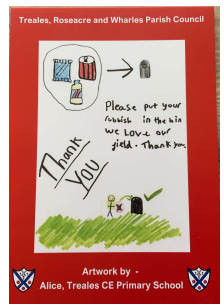 Treales, Roseacre and Wharles Parish Council
Please put your
rubbish in the bin
we Love our
field. Thank you.
Thank
You
Artwork by -
Alice, Treales CE Primary School